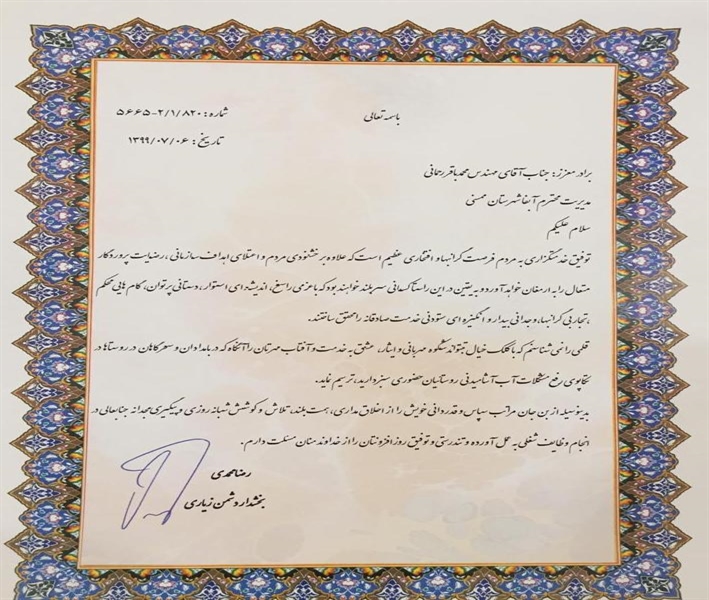 باسمه تعالی
شماره: ۵۶۶۵-۲/۱/۸۲۰
تاریخ: ۱۳۹۹/۰۷/۰۶
برادر معزز: جناب آقای مهندس محمدباقر رحمانی
مدیریت محترم آبفا شهرستان ممسنی
سلام علیکم
توفیق خدمتگزاری به مردم فرصت گرانبها و افتخاری عظیم است که علاوه بر خشنودی مردم و اعتلای اهداف سازمانی، رضایت پروردگار
متعال را به ارمغان خواهد آورد و به یقین در این راستا کسانی سربلند خواهند بود که با عزمی راسخ، اندیشه ای استوار، دستانی پرتوان، گام هایی محکم
، تجاربی گرانبها، وجدانی بیدار و انگیزه ای ستودنی خدمت صادقانه را محقق ساختند.
قلمی را نمی شناسم که با کلک خیال بتواند شکوه مهربانی و ایثار، عشق به خدمت و آفتاب مهرتان را آنگاه که در بامدادان و سحرگاهان در روستاها در
تکاپوی رفع مشکلات آب آشامیدنی روستائیان حضوری سبز دارید، ترسیم نماید.
بدینوسیله از بن جان مراتب سپاس و قدردانی خویش را از اخلاق مداری، همت بلند، تلاش و کوشش شبانه روزی و پیگیری مجدانه جنابعالی در
انجام وظایف شغلی به عمل آورده و تندرستی و توفیق روزافزونتان را از خداوند منان مسئلت دارم.
رضا محمدی
بخشدار دشمن زیاری